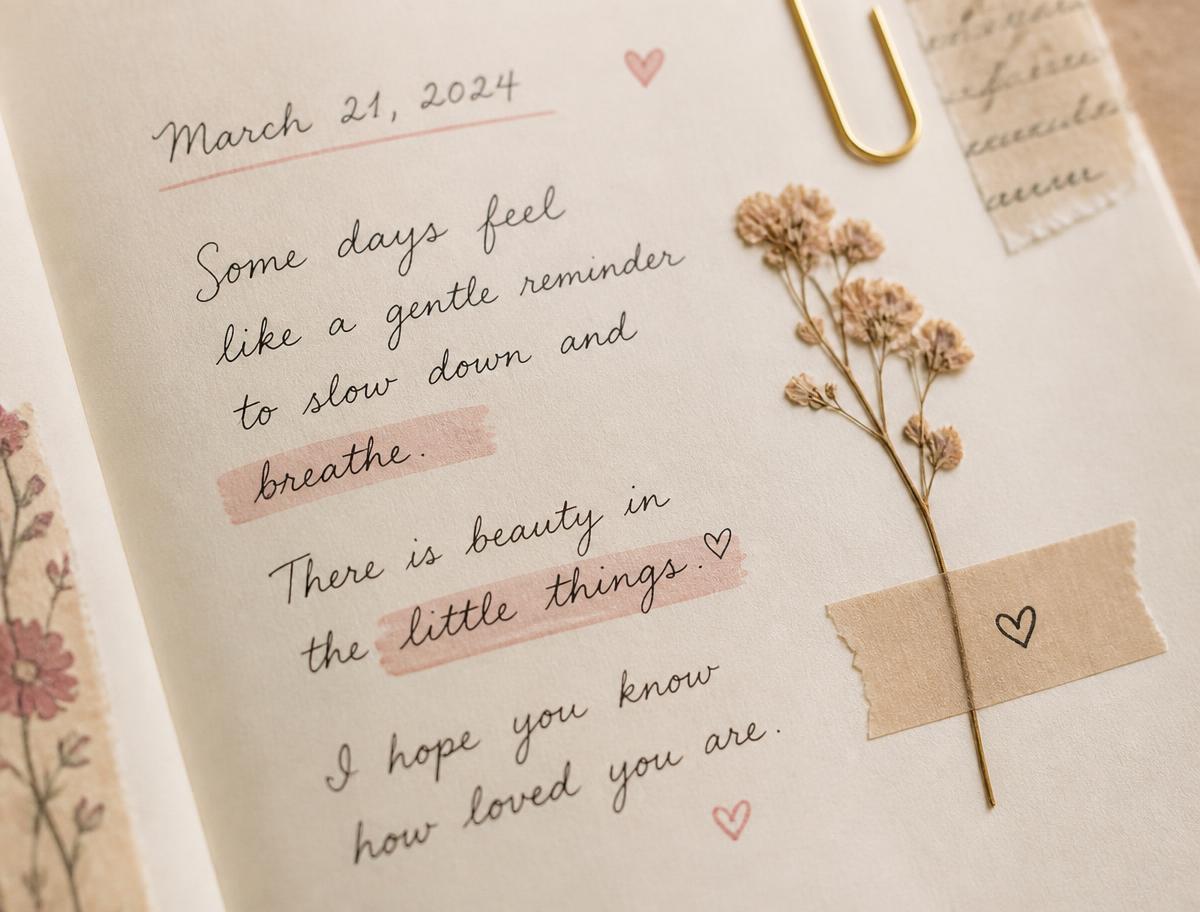 March 21, 2024
Some days feel
like a gentle reminder
to slow down and
breathe.
There is beauty in
the little things.♡
I hope you know
how loved you are.